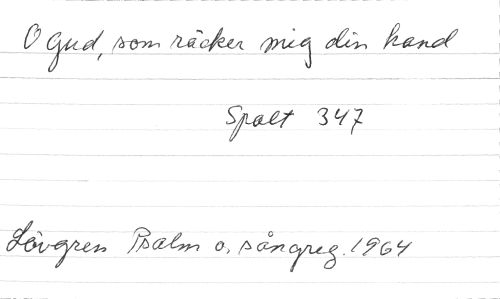 O Gud, som räcker mig din hand
Spalt 347
Lövgren Psalm o. sångreg. 1964